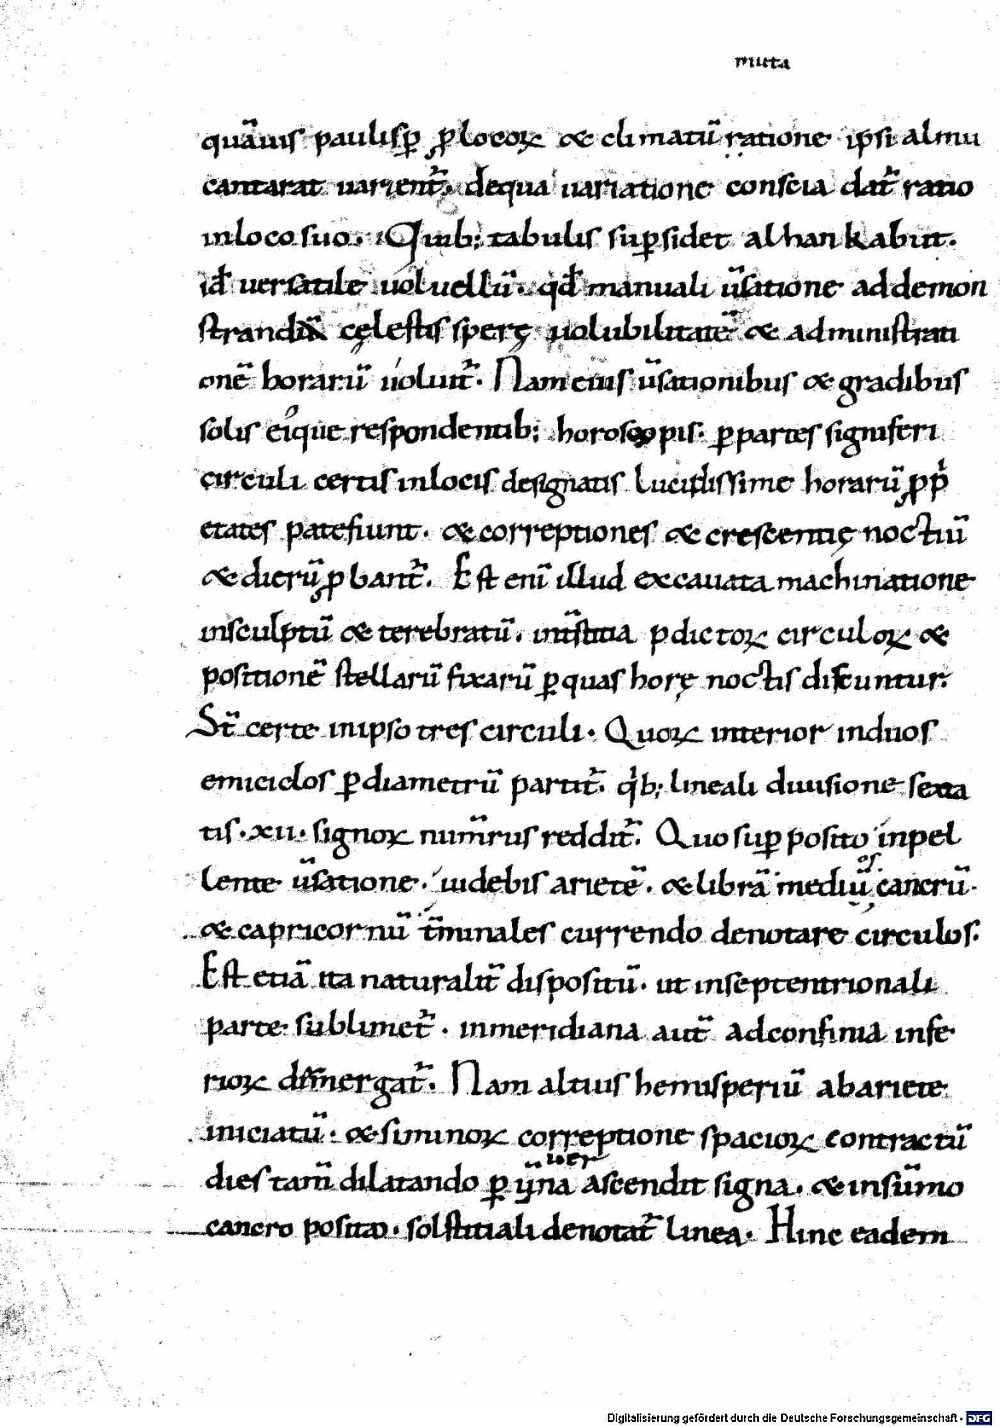 muta
quãuis paulisꝑ ꝓ locoꝝ & climatũ ratione ipsi almu
cantarat uarient᷑. dequa uariatione conscia dat᷑ ratio
inloco suo. Quib; tabulis suꝑsidet alhankabut.
id÷ uersatile uoluellũ. qđ manuali ũsatione addemon
strandã cęlestis sperę uolubilitatẽ & administrati
onẽ horarũ uoluit᷑. Nam eius ũsationibus & gradibus
solis eique respondentib; horoscopis. ꝑpartes signiferi
circuli certis inlocis designatis lucidissime horarũ ꝓp̃
etates patefiunt. & correptiones & crescentię noctiũ
& dierũ ꝓbant᷑. Est enĩ illud excauata machinatione
insculptũ & terebratũ. int̃stitia p̄dictoꝝ circuloꝝ &
positionẽ stellarũ fixarũ ꝑquas horę noctis discuntur.
St̃ certe inipso tres circuli. Quoꝝ interior induos
emiciclos ꝑdiametrũ partit᷑. qͥb; lineali diuisione sexta
tis .xii. signoꝝ num̃rus reddit᷑. Quo suꝑposito inpel
lente ũsatione. uidebis arietẽ. & librã mediũ os cancrũ.
& capricornũ t̃minales currendo denotare circulos.
Est etiã ita naturalit̃ dispositũ. ut inseptentrionali
parte sublimet᷑. inmeridiana aut̃ adconfinia infe
rioꝝ dim̃ergat᷑. Nam altius hemisperiũ abariete
iniciatũ. & siminoꝝ correptione spacioꝝ contractũ
dies tam̃ dilatando ꝑ uer na ascendit signa. & insũmo
cancro posita. solstitiali denotat᷑ linea. Hinc eadem
Digitalisierung gefördert durch die Deutsche Forschungsgemeinschaft - DFG